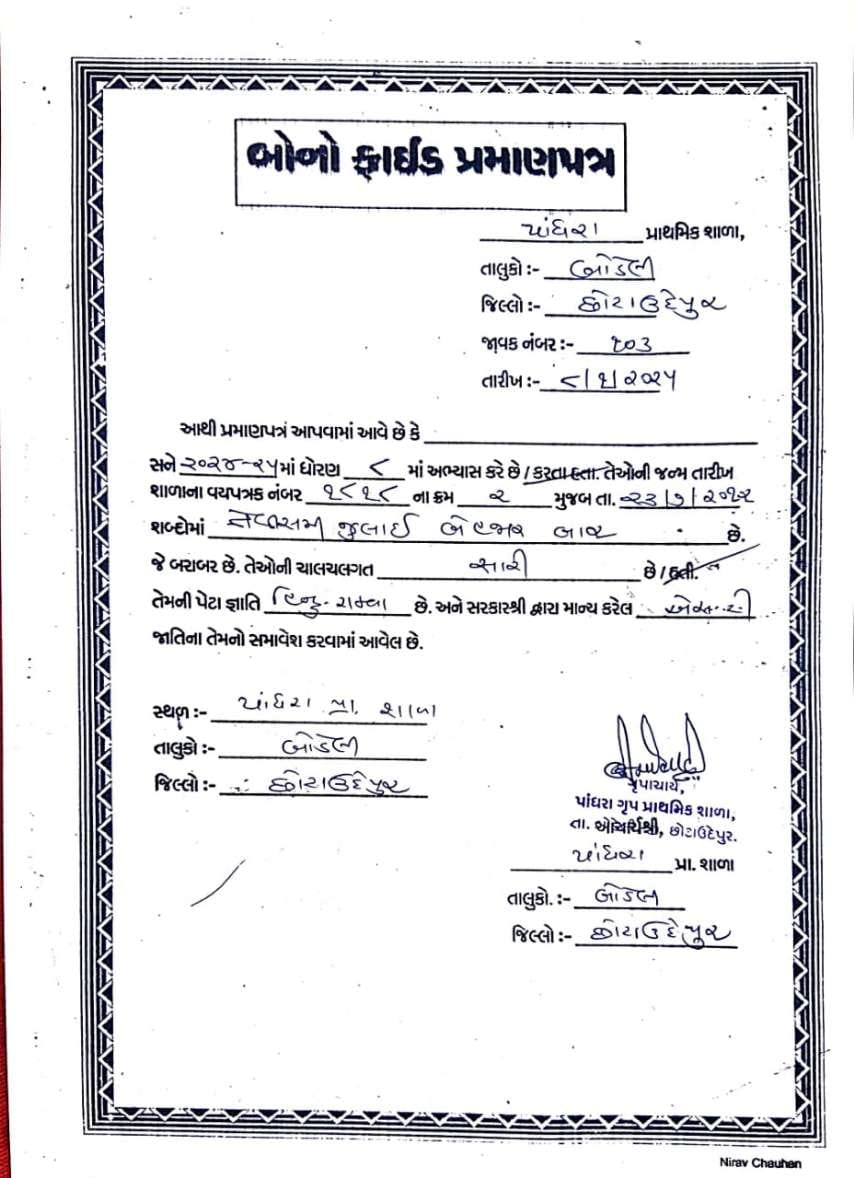 બોનો ફાઈડ પ્રમાણપત્ર
પાંધરા પ્રાથમિક શાળા,
તાલુકો :- બોડેલી
જિલ્લો :- છોટાઉદેપુર
જાવક નંબર :- ૧૦૩
તારીખ :- ૮/૧/૨૦૨૫
આથી પ્રમાણપત્રં આપવામાં આવે છે કે
સને ૨૦૨૪-૨૫માં ધોરણ ૮ માં અભ્યાસ કરે છે / કરતા હતા. તેઓની જન્મ તારીખ
શાળાના વયપત્રક નંબર ૧૮૧૮ ના ક્રમ ૨ મુજબ તા. ૨૩/૭/૨૦૧૨
શબ્દોમાં ત્રેવીસમી જુલાઈ બે હજાર બાર છે.
જે બરાબર છે. તેઓની ચાલચલગત સારી છે / હતી.
તેમની પેટા જ્ઞાતિ હિન્દુ- છે. અને સરકારશ્રી દ્વારા માન્ય કરેલ
જાતિના તેમનો સમાવેશ કરવામાં આવેલ છે.
સ્થળ :- પાંધરા પ્રા. શાળા
તાલુકો :- બોડેલી
જિલ્લો :- છોટાઉદેપુર
પાંધરા ગૃપ પ્રાથમિક શાળા,
તા. છોટાઉદેપુર.
પાંધરા પ્રા. શાળા
તાલુકો. :- બોડેલી
જિલ્લો :- છોટાઉદેપુર
Nirav Chauhan